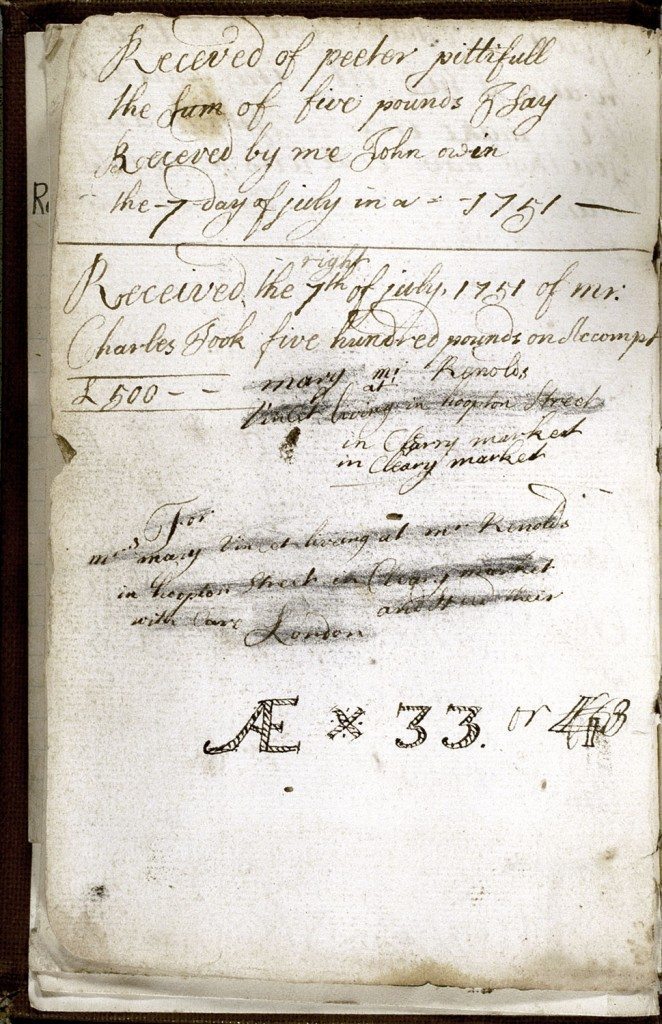 Receved of peeter pittifull
the sum of five pounds I say
Receved by me John owin
the 7 day of july in a = - 1751 —
right
Received, the 7th of july, 1751 of mr.
Charles Took five hundred pounds on Accompt
£ 500 - -
mary mr Renolds
at
living in hoopton Street
in Clarry market
in Cleary market
For
mrs mary Vincet living at mr Renolds
in hoopton Street in Cleary market
with Care and Speed their
London
Æ * 33. or